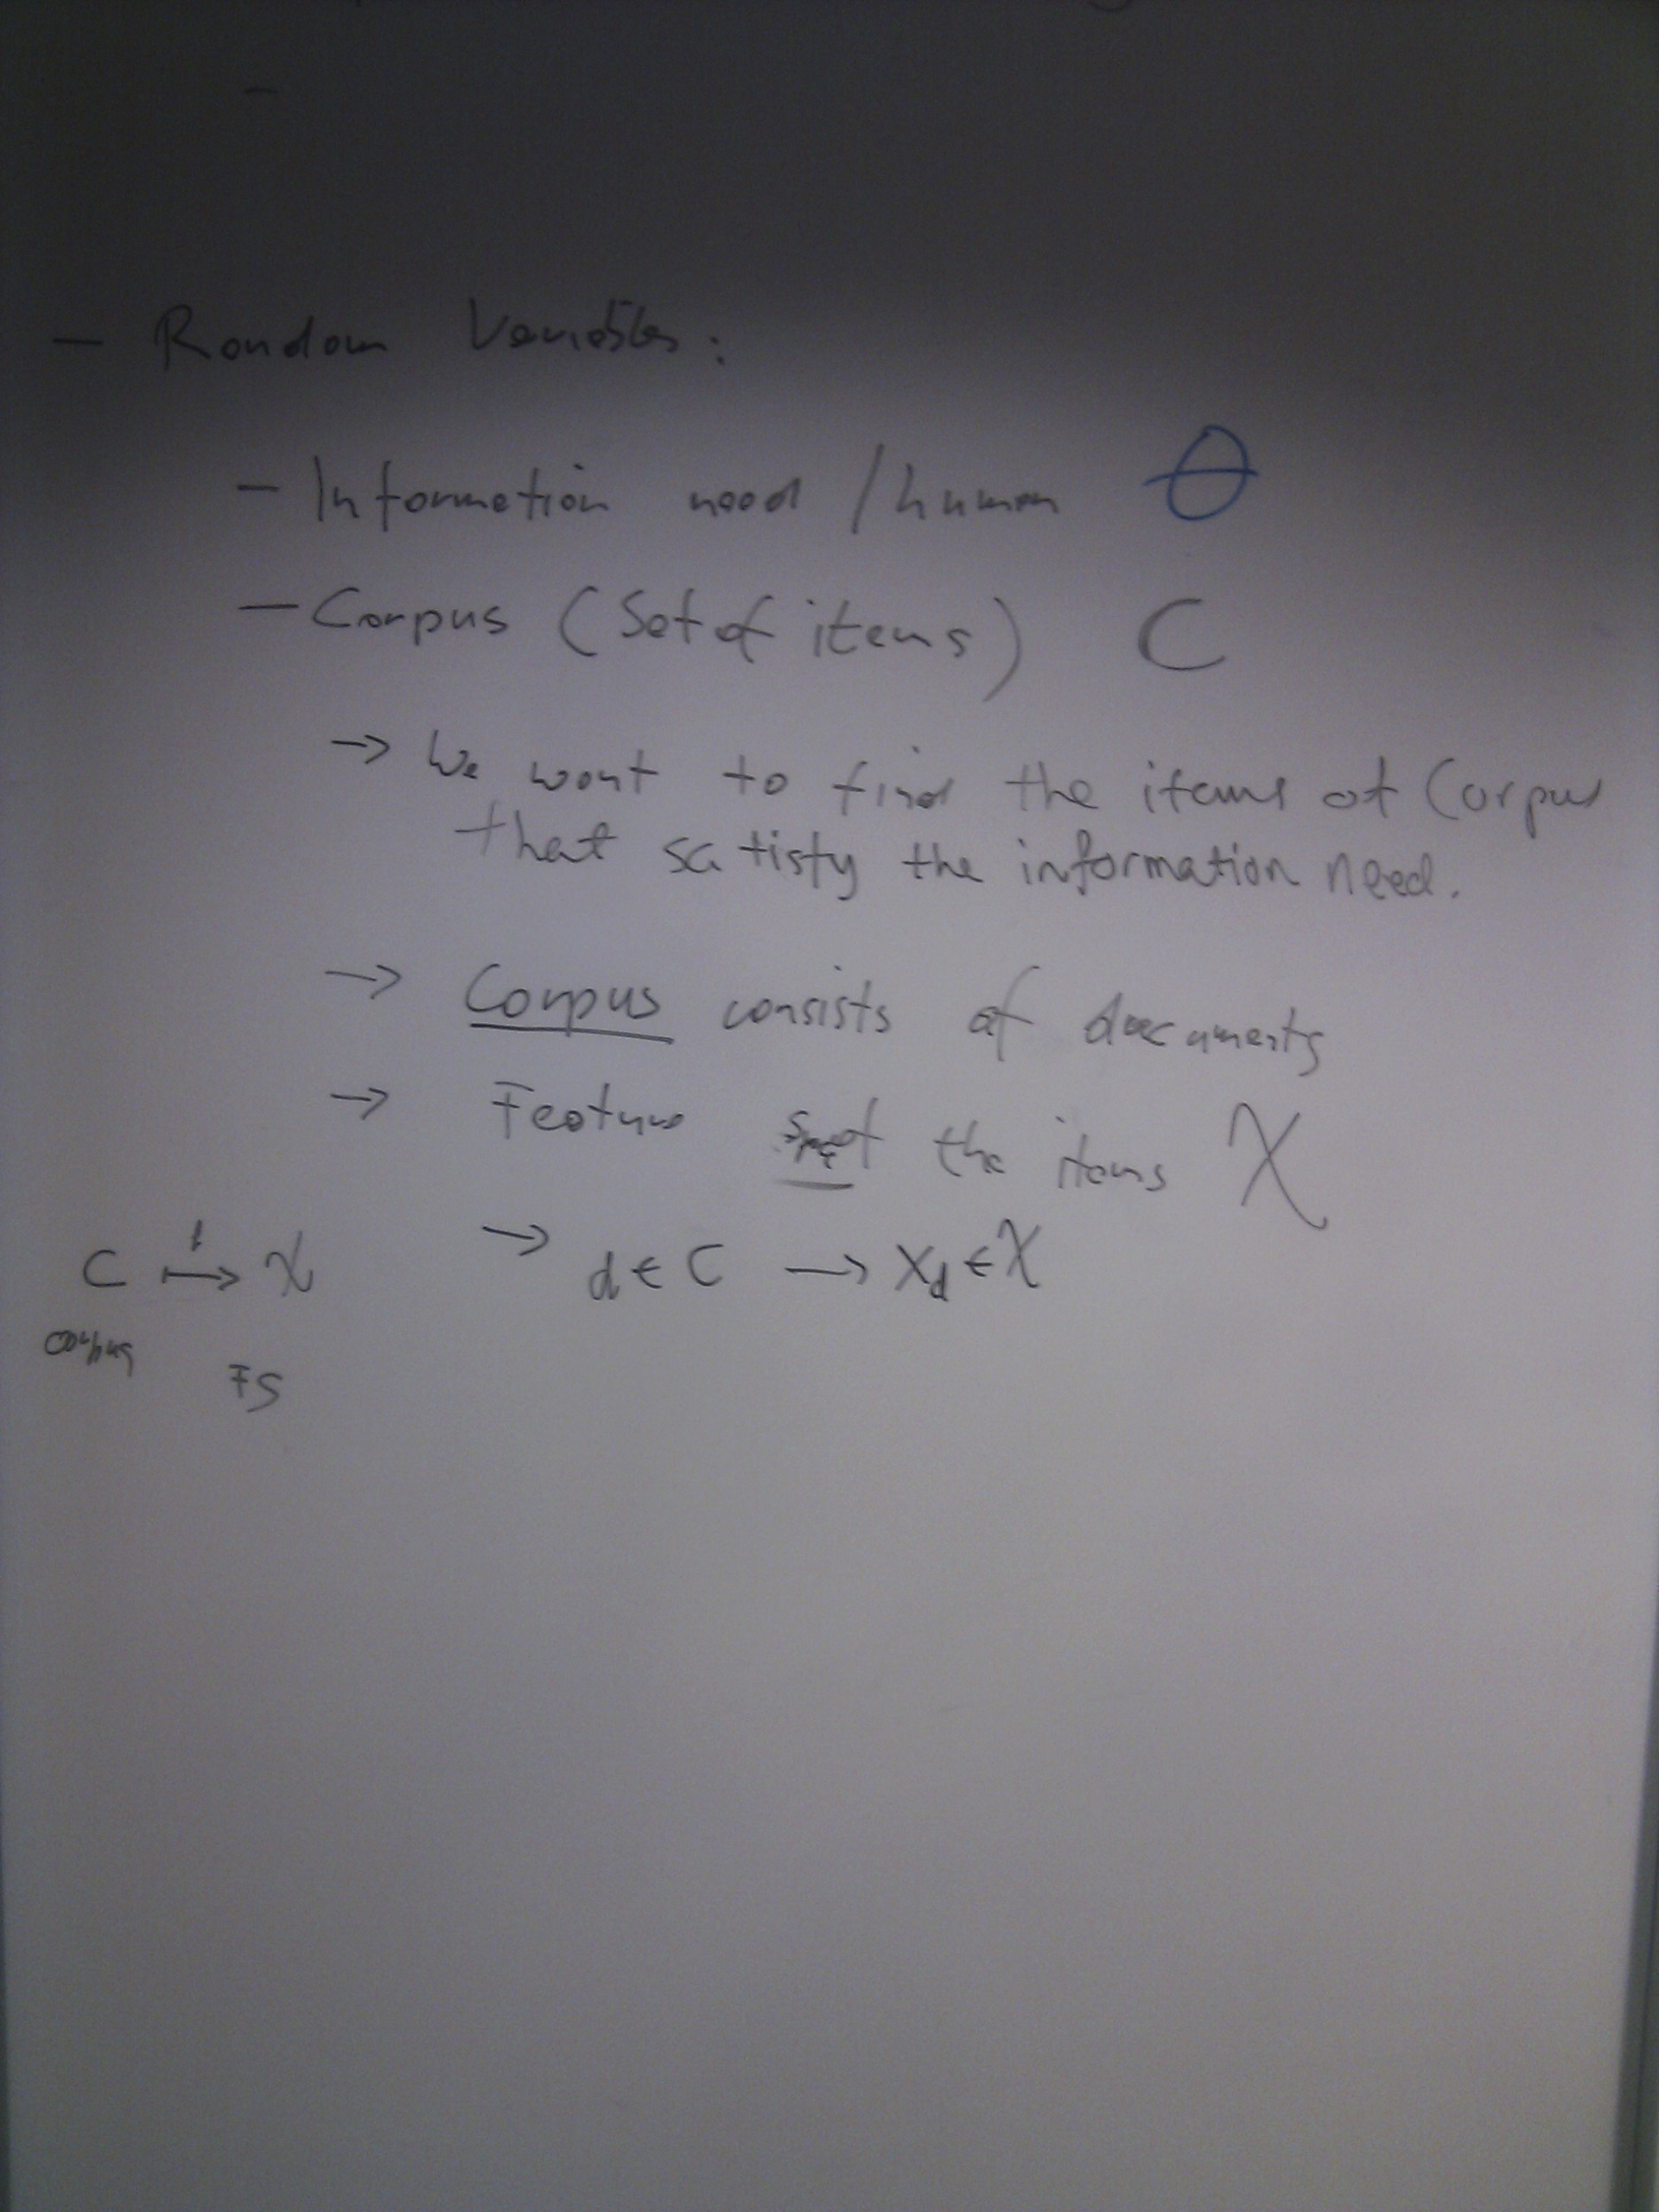 — Random Variables:
— Information need / human θ
— Corpus (Set of items) C
→ We want to find the items of Corpus
that satisfy the information need.
→ Corpus consists of documents
→ Feature the items X
→ d ∈ C → X_d ∈ X
C ↦ X
corpus
FS